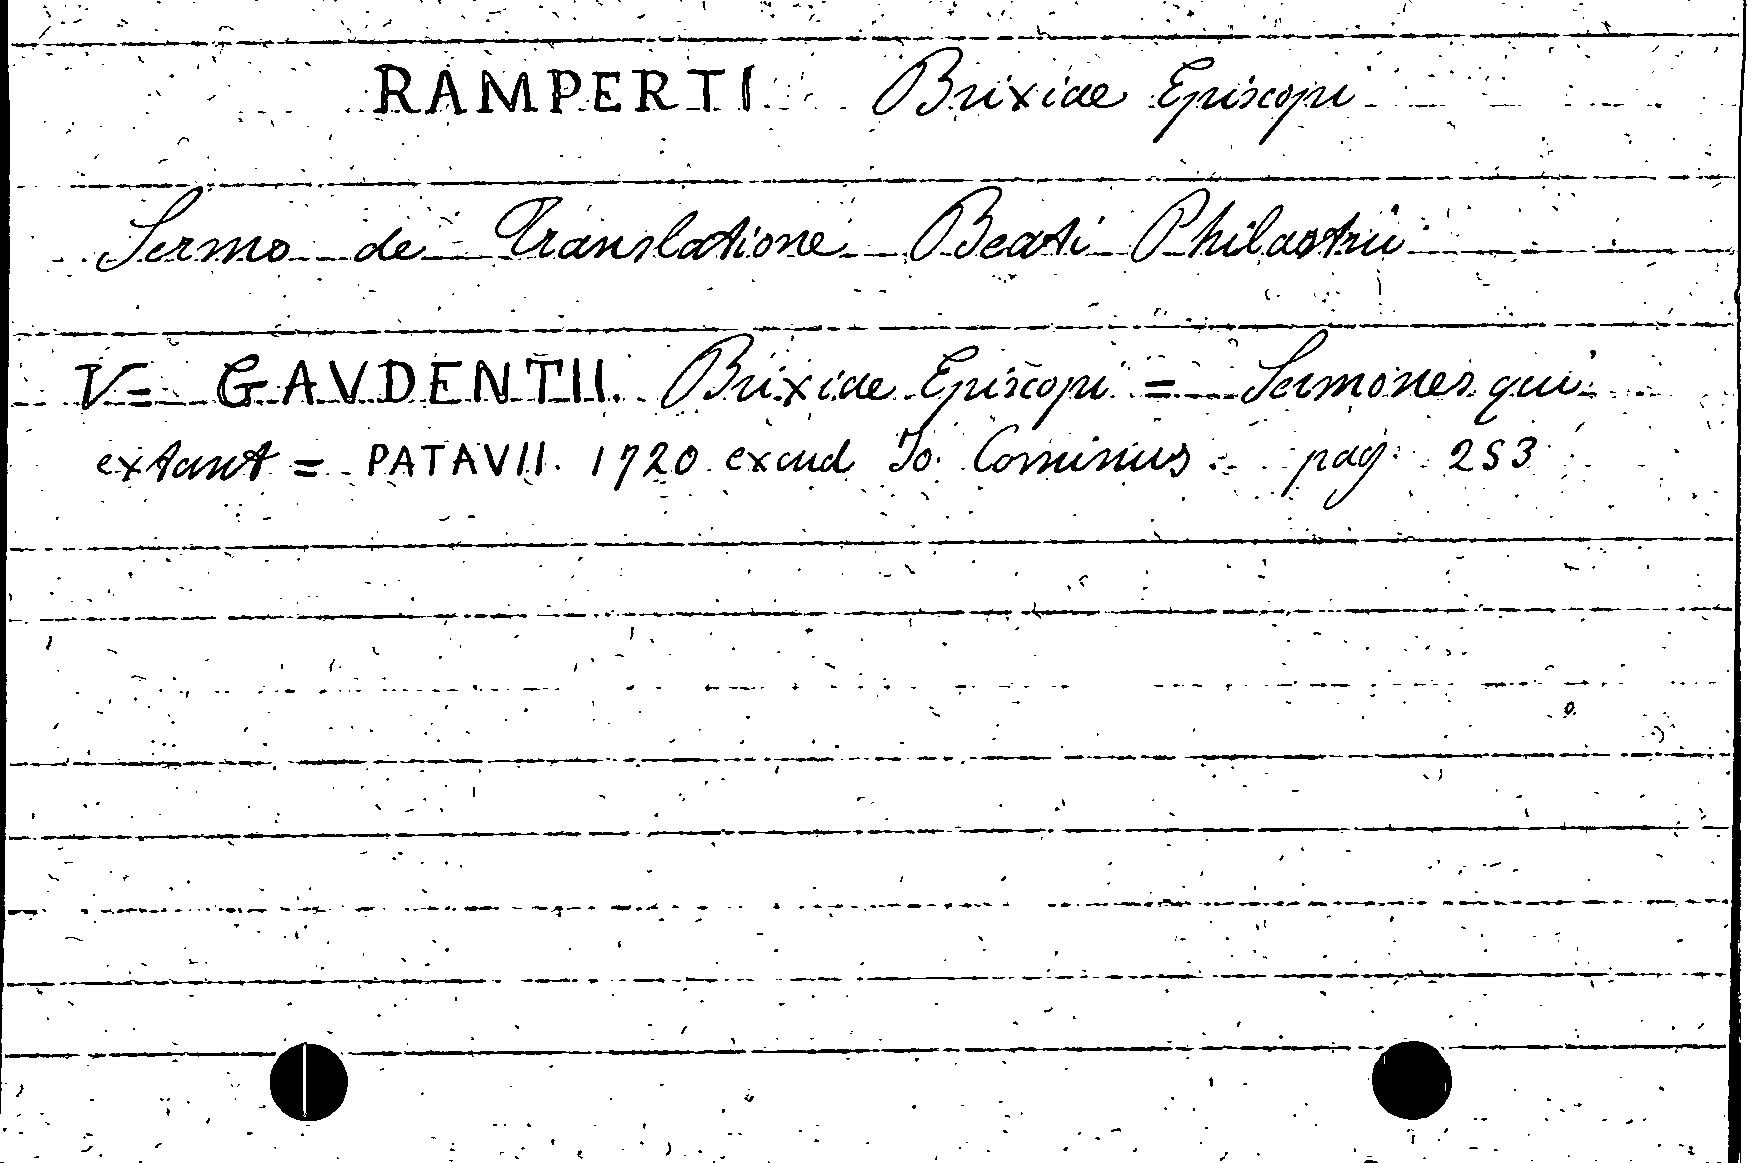 RAMPERTI Brixiae Episcopi
Sermo de Translatione Beati Philastrii
V= GAVDENTII. Brixiae Episcopi = Sermones qui
extant = PATAVII. 1720 excud Jo. Cominus. pag. 253